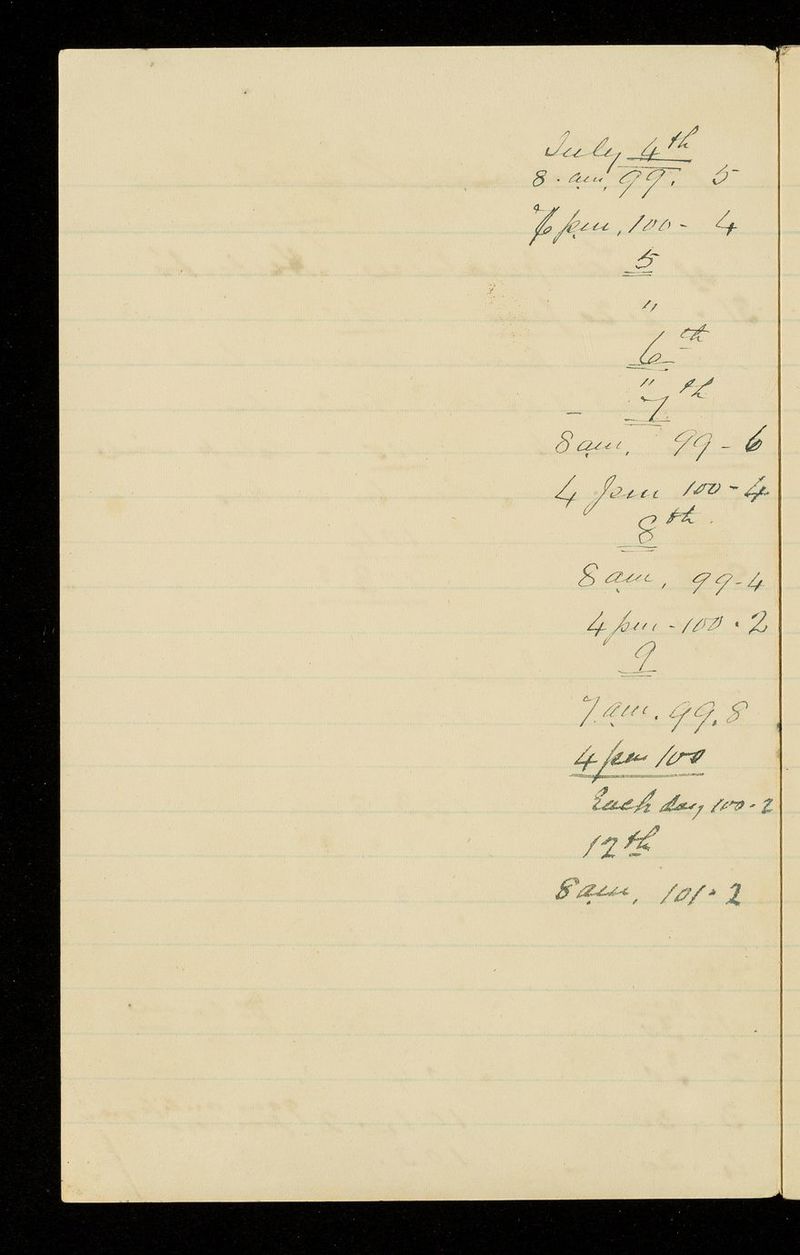 July 4th
8. am, 99. 5
6 pm, 100 - 4
5
"
6th
"
7th
8 am, 99 - 6
4 pm 100 - 4
8th.
8 am, 99 - 4
4 pm - 100 . 2
9
7 am. 99.8
4 pm 100
Each day 100 . 2
12th
8 am, 101 . 2